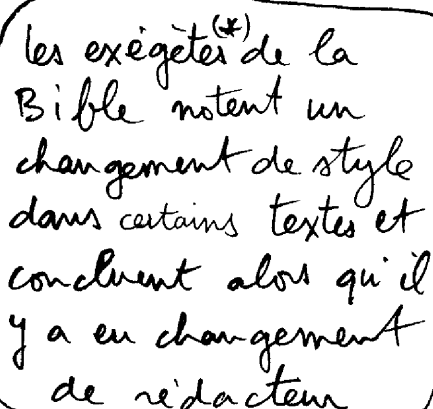 les exégètes(*) de la
Bible notent un
changement de style
dans certains textes et
concluent alors qu'il
y a eu changement
de rédacteur